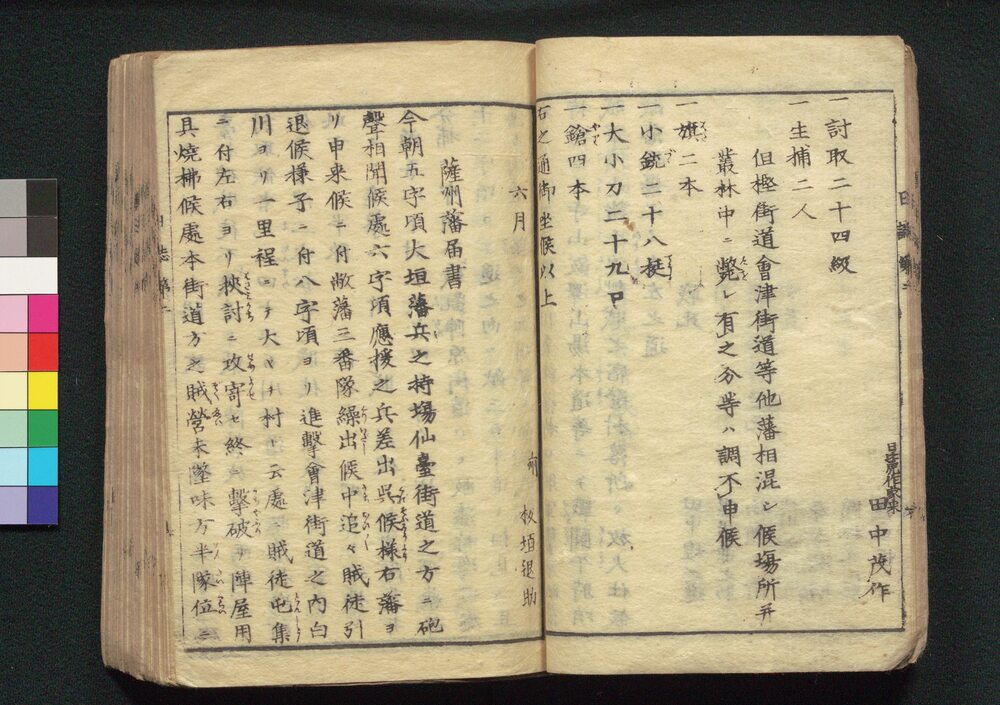 田中茂作
一討取二十四級
一生捕二人
但樫街道會津街道等他藩相混シ候場所并
叢林中ニ斃レ有之分等ハ調不申候
一旗二本
一小銃二十八挺
一大小刀二十九口
一鎗四本
右之通御坐候以上
六月 板垣退助
薩州藩届書
今朝五字頃大垣藩兵之持場仙臺街道之方ニ砲
聲相聞候處六字頃應援之兵差出呉候様右藩ヨ
リ申来候ニ付敝藩三番隊繰出候中追々賊徒引
退候様子ニ付八字頃ヨリ進撃會津街道之内白
川ヨリ一里程四チ大ヤチ村ト云處賊徒屯集
ニ付左右ヨリ挾討ニ攻寄セ終ニ撃破リ陣屋用
具燒拂候處本街道方之賊營未墜味方半隊位ニ
日誌第二